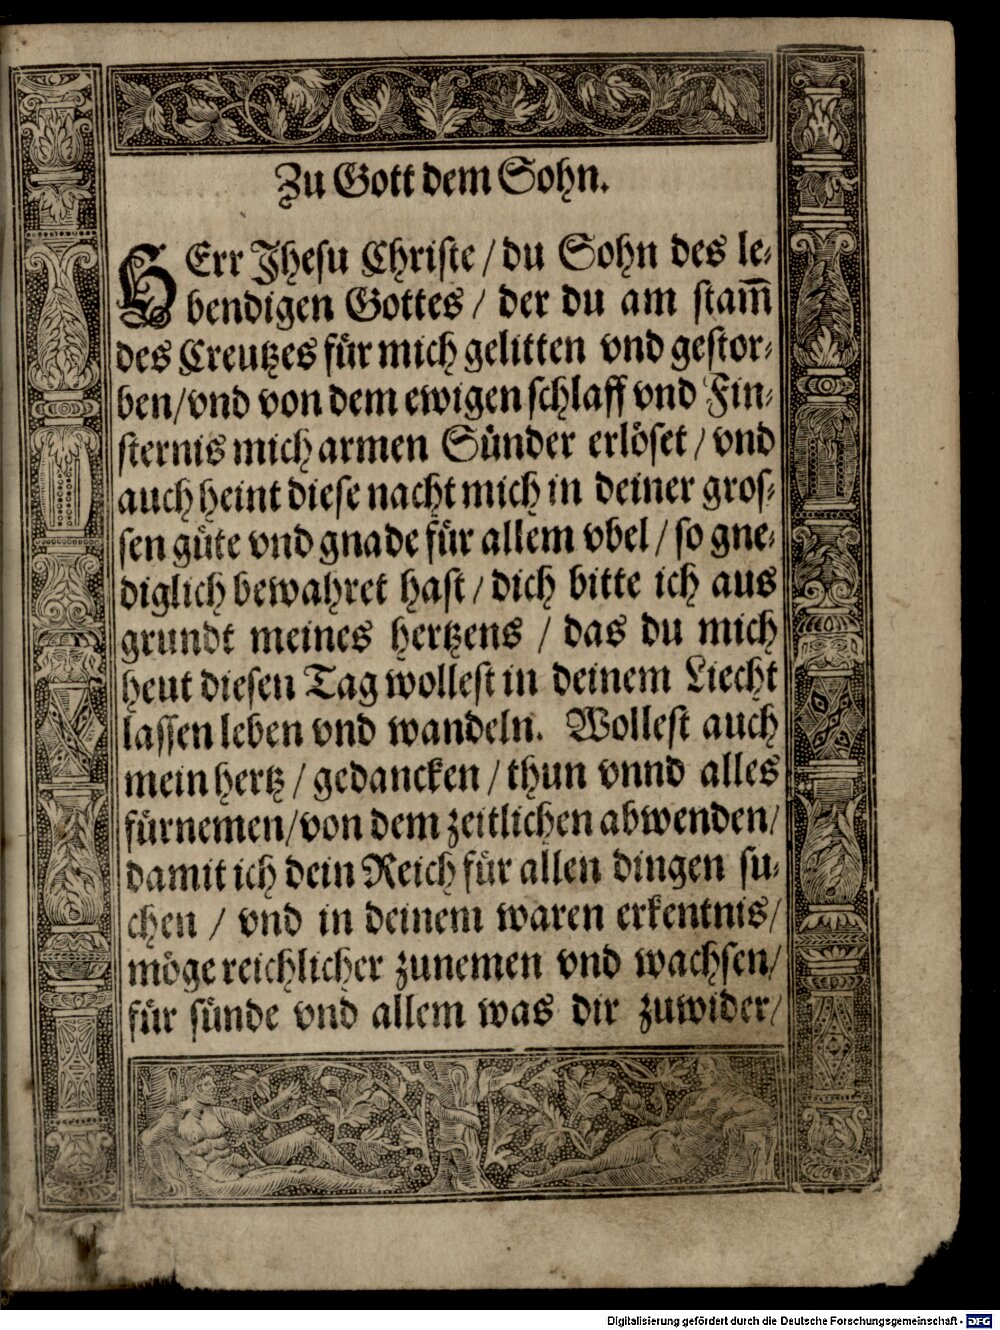 Zu Gott dem Sohn.
HErr Jhesu Christe / du Sohn des le-
bendigen Gottes / der du am stam̅
des Creutzes für mich gelitten vnd gestor-
ben / vnd von dem ewigen schlaff vnd Fin-
sternis mich armen Sünder erlöset / vnd
auch heint diese nacht mich in deiner gros-
sen güte vnd gnade für allem vbel / so gne-
diglich bewahret hast / dich bitte ich aus
grundt meines hertzens / das du mich
heut diesen Tag wollest in deinem Liecht
lassen leben vnd wandeln. Wollest auch
mein hertz / gedancken / thun vnnd alles
fürnemen / von dem zeitlichen abwenden /
damit ich dein Reich für allen dingen su-
chen / vnd in deinem waren erkentnis /
möge reichlicher zunemen vnd wachsen /
für sünde vnd allem was dir zuwider /
Digitalisierung gefördert durch die Deutsche Forschungsgemeinschaft - DFG